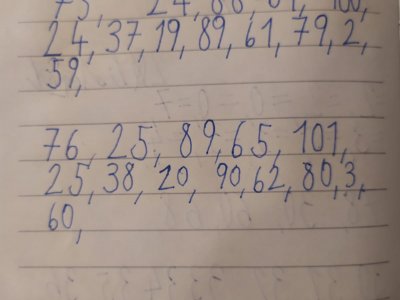 75, 24, 88, 64, 100,
24, 37, 19, 89, 61, 79, 2,
59,
76, 25, 89, 65, 101,
25, 38, 20, 90, 62, 80, 3,
60,